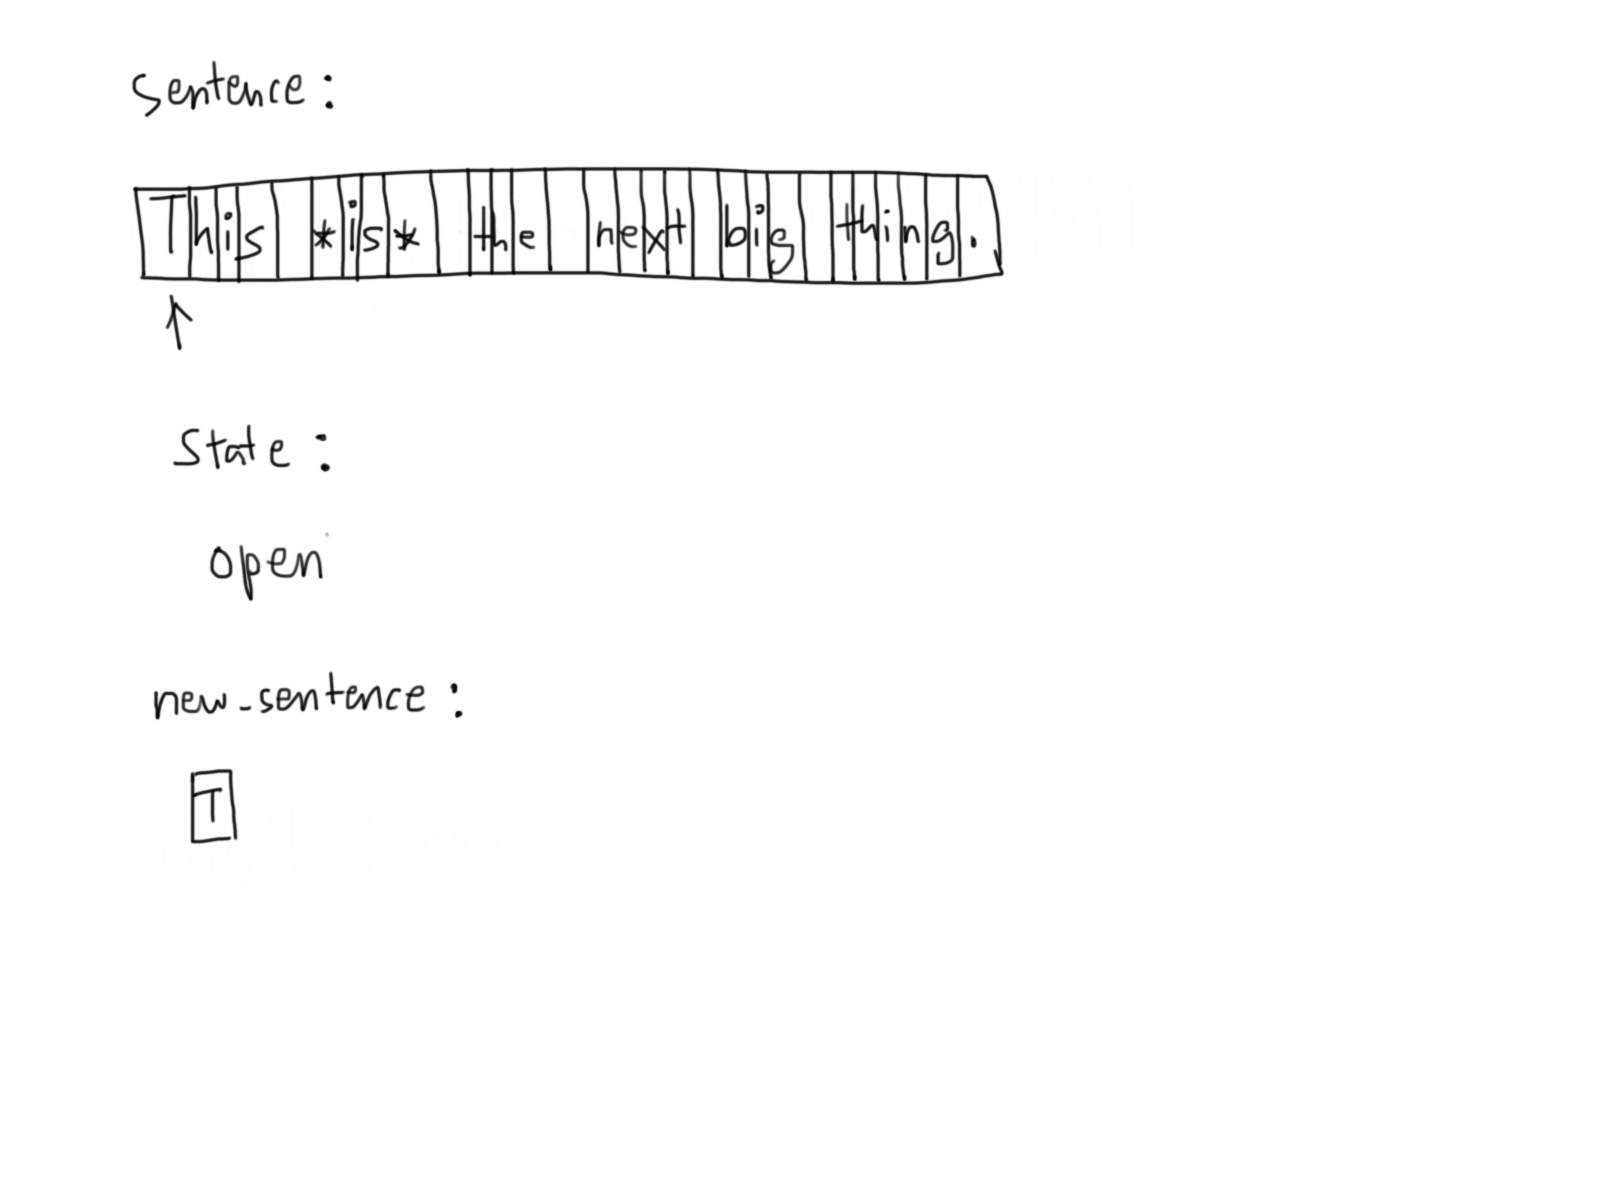 Sentence:
This *is* the next big thing.
State:
open
new_sentence:
T